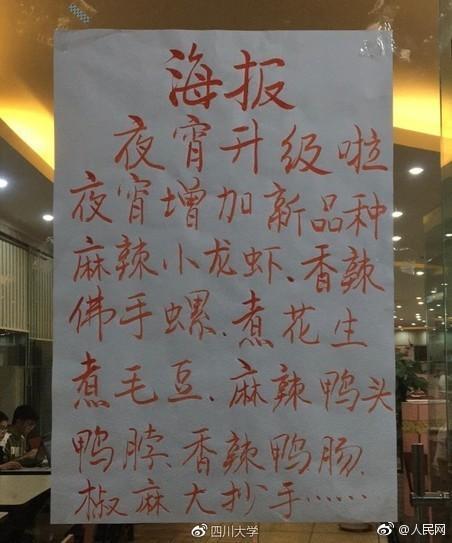 海报
夜宵升级啦
夜宵增加新品种
麻辣小龙虾、香辣
佛手螺、煮花生
煮毛豆、麻辣鸭头
鸭脖、香辣鸭肠、
椒麻大抄手……
四川大学
@人民网